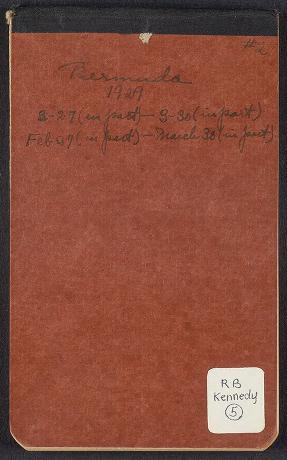 #2
Bermuda
1929
(in part) — 3-30 (in part)
(in part) — March 30 (in part).
RB
Kennedy
5